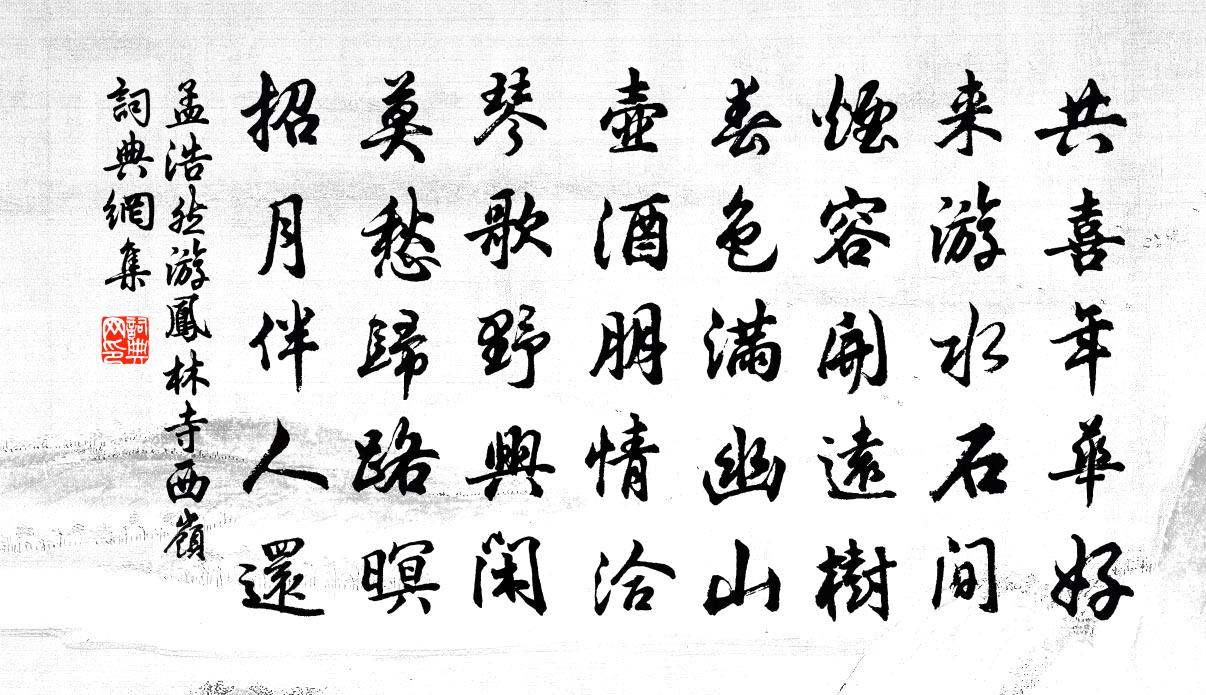 共喜年華好
来游水石間
煙容開遠樹
春色滿幽山
壺酒朋情洽
琴歌野興閑
莫愁歸路暝
招月伴人還
孟浩然游鳳林寺西嶺
詞典網集
詞典网印